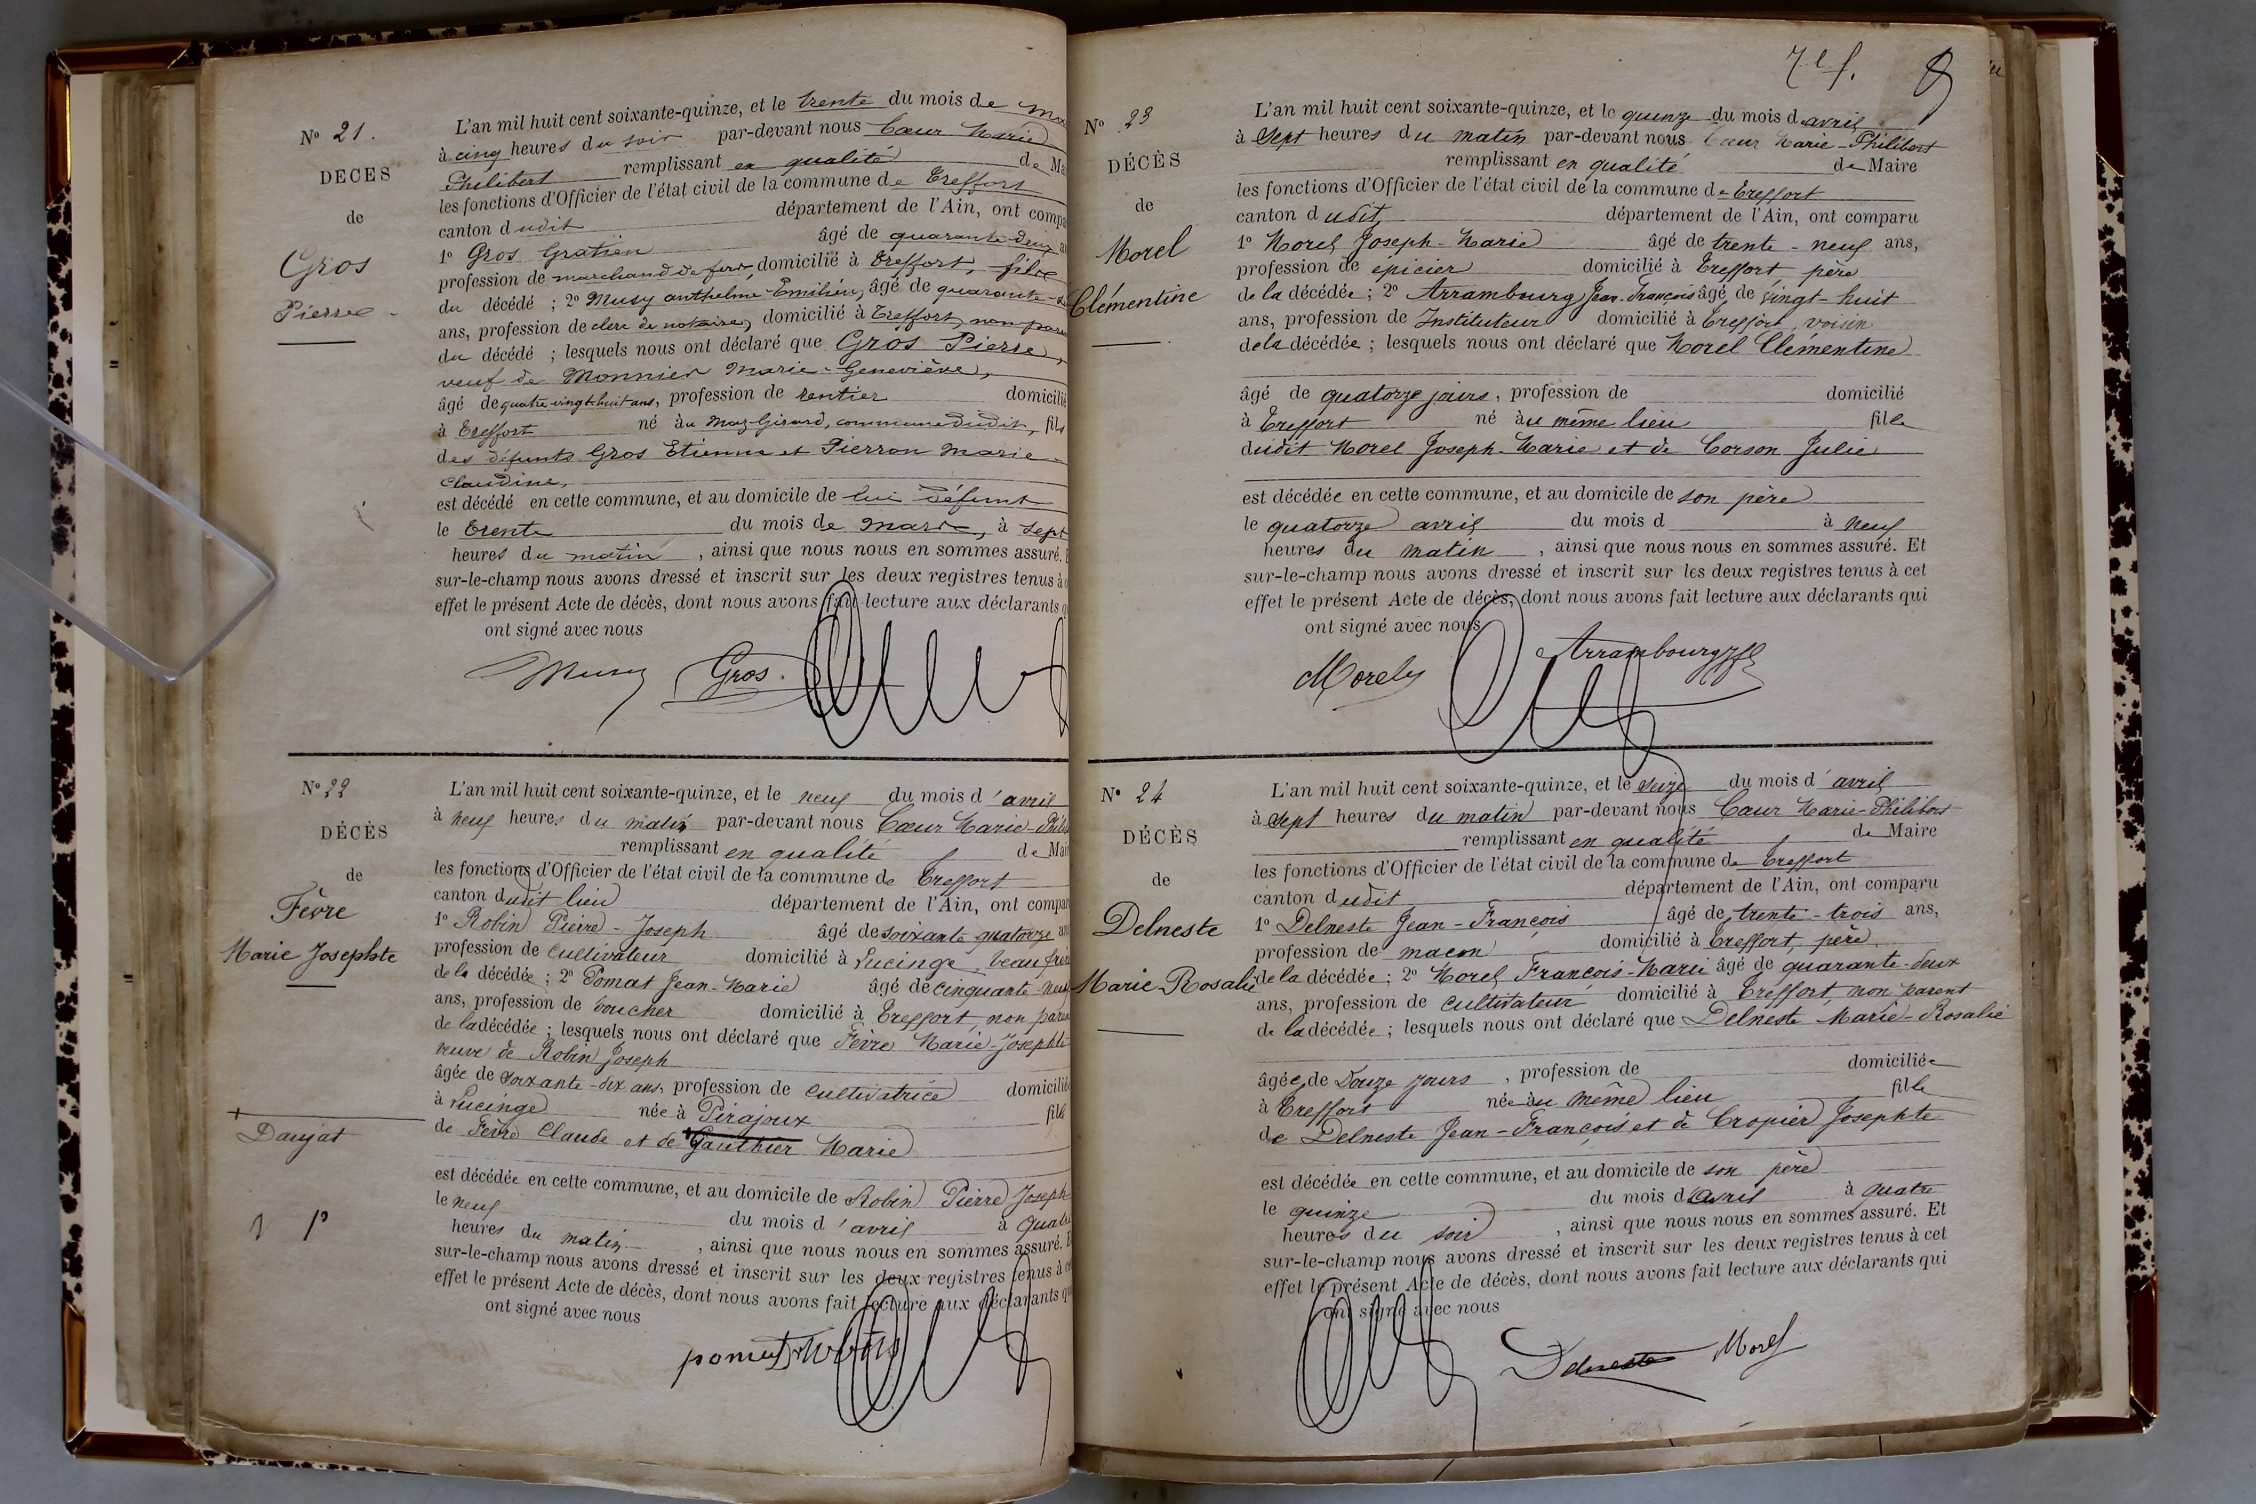 N° 21.
DECES
de
Gros
Pierre
L'an mil huit cent soixante-quinze, et le trente du mois de
à cinq heures du soir par-devant nous Cœur Marie
Philibert remplissant en qualité de
les fonctions d'Officier de l'état civil de la commune de Treffort
canton dudit département de l'Ain, ont
1° Gros Gratien âgé de quarante-deux
profession de marchand de fer, domicilié à Treffort, fils
du décédé ; 2° Musy anthelme Emilien, âgé de quarante
ans, profession de clerc de notaire, domicilié à Treffort, non
du décédé ; lesquels nous ont déclaré que Gros Pierre,
veuf de Monnier Marie-Geneviève,
âgé de quatre-vingt-huit ans, profession de rentier domicilié
à Treffort né au Maz-Girard, commune dudit, fils
des défunts Gros Etienne et Pierron Marie
Claudine,
est décédé en cette commune, et au domicile de lui défunt
le trente du mois de mars, à sept
heures du matin, ainsi que nous nous en sommes assuré.
sur-le-champ nous avons dressé et inscrit sur les deux registres tenus à
effet le présent Acte de décès, dont nous avons fait lecture aux déclarants
ont signé avec nous
Musy Gros.
N° 22
DÉCÈS
de
Fèvre
Marie Josephte
Daujat
L'an mil huit cent soixante-quinze, et le neuf du mois d'avril
à neuf heures du matin par-devant nous Cœur Marie
remplissant en qualité de
les fonctions d'Officier de l'état civil de la commune de Treffort
canton dudit lieu département de l'Ain, ont
1° Robin Pierre-Joseph âgé de soixante quatorze
profession de cultivateur domicilié à Lucinge, beau
de la décédée ; 2° Pomat Jean-Marie âgé de cinquante
ans, profession de boucher domicilié à Treffort, non
de la décédée ; lesquels nous ont déclaré que Fèvre Marie-Josephte
veuve de Robin Joseph
âgée de soixante-dix ans, profession de cultivatrice domiciliée
à Lucinge née à Pirajoux fille
de Fèvre Claude et de Gauthier Marie
est décédée en cette commune, et au domicile de Robin Pierre Joseph
le neuf du mois d'avril à quatre
heures du matin, ainsi que nous nous en sommes assuré.
sur-le-champ nous avons dressé et inscrit sur les deux registres tenus à
effet le présent Acte de décès, dont nous avons fait lecture aux déclarants
ont signé avec nous
8
N° 23
DÉCÈS
de
Morel
Clémentine
L'an mil huit cent soixante-quinze, et le quinze du mois d'avril
à sept heures du matin par-devant nous Cœur Marie-Philibert
remplissant en qualité de Maire
les fonctions d'Officier de l'état civil de la commune de Treffort
canton dudit département de l'Ain, ont comparu
1° Morel Joseph-Marie âgé de trente-neuf ans,
profession de épicier domicilié à Treffort, père
de la décédée ; 2° Arrambourg Jean-François âgé de vingt-huit
ans, profession de Instituteur domicilié à Treffort, voisin
de la décédée ; lesquels nous ont déclaré que Morel Clémentine
âgé de quatorze jours, profession de domicilié
à Treffort né au même lieu fille
dudit Morel Joseph-Marie et de Corson Julie
est décédée en cette commune, et au domicile de son père
le quatorze avril du mois d à neuf
heures du matin, ainsi que nous nous en sommes assuré. Et
sur-le-champ nous avons dressé et inscrit sur les deux registres tenus à cet
effet le présent Acte de décès, dont nous avons fait lecture aux déclarants qui
ont signé avec nous
Morel Arrambourg
N° 24
DÉCÈS
de
Delneste
Marie-Rosalie
L'an mil huit cent soixante-quinze, et le seize du mois d'avril
à sept heures du matin par-devant nous Cœur Marie-Philibert
remplissant en qualité de Maire
les fonctions d'Officier de l'état civil de la commune de Treffort
canton dudit département de l'Ain, ont comparu
1° Delneste Jean-François âgé de trente-trois ans,
profession de maçon domicilié à Treffort, père
de la décédée ; 2° Morel François-Marie âgé de quarante-deux
ans, profession de cultivateur domicilié à Treffort, non parent
de la décédée ; lesquels nous ont déclaré que Delneste Marie-Rosalie
âgée de Douze jours, profession de domiciliée
à Treffort née au même lieu fille
de Delneste Jean-François et de Cropier Josephte
est décédée en cette commune, et au domicile de son père
le quinze du mois d'avril à quatre
heures du soir, ainsi que nous nous en sommes assuré. Et
sur-le-champ nous avons dressé et inscrit sur les deux registres tenus à cet
effet le présent Acte de décès, dont nous avons fait lecture aux déclarants qui
ont signé avec nous
Delneste Morel